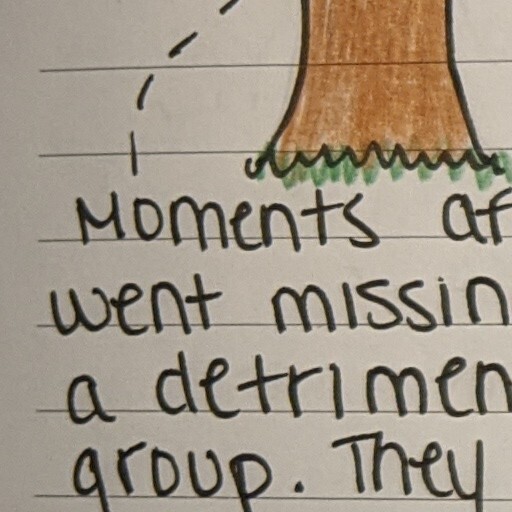 Moments af
went missin
a detrimen
group. They